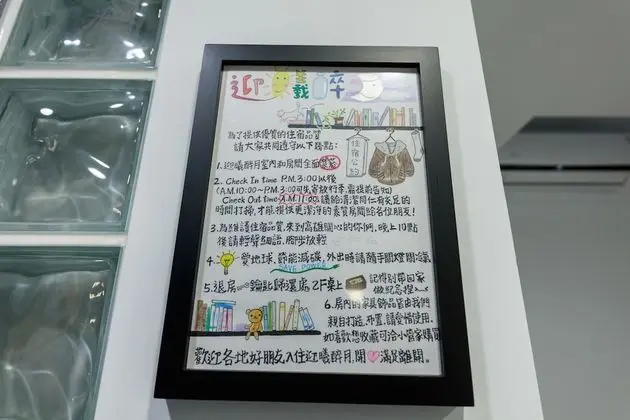 迎曦醉月
為了提供優質的住宿品質
請大家共同遵守以下幾點:
住宿公約
1. 迎曦醉月室內和房間全面禁菸
2. Check In time P.M.3:00以後
(A.M.10:00~P.M.3:00可先寄放行李,需提前告知)
Check Out time A.M.11:00,讓給清潔同仁有充足的
時間打掃,才能提供更潔淨的素質房間給各位朋友!
3. 為維護住宿品質,來到高雄開心的你們,晚上10點
後請輕聲細語,腳步放輕
4. 愛地球,節能減碳,外出時請隨手關燈關冷氣
SAVE POWER
5. 退房 鑰匙歸還處,2F桌上 記得別帶回家
做紀念捏~
6. 房內的家具飾品皆由我們
親自打造、佈置,請愛惜使用.
如喜歡想收藏可洽小管家購買
歡迎各地好朋友入住迎曦醉月,開 滿足離開。